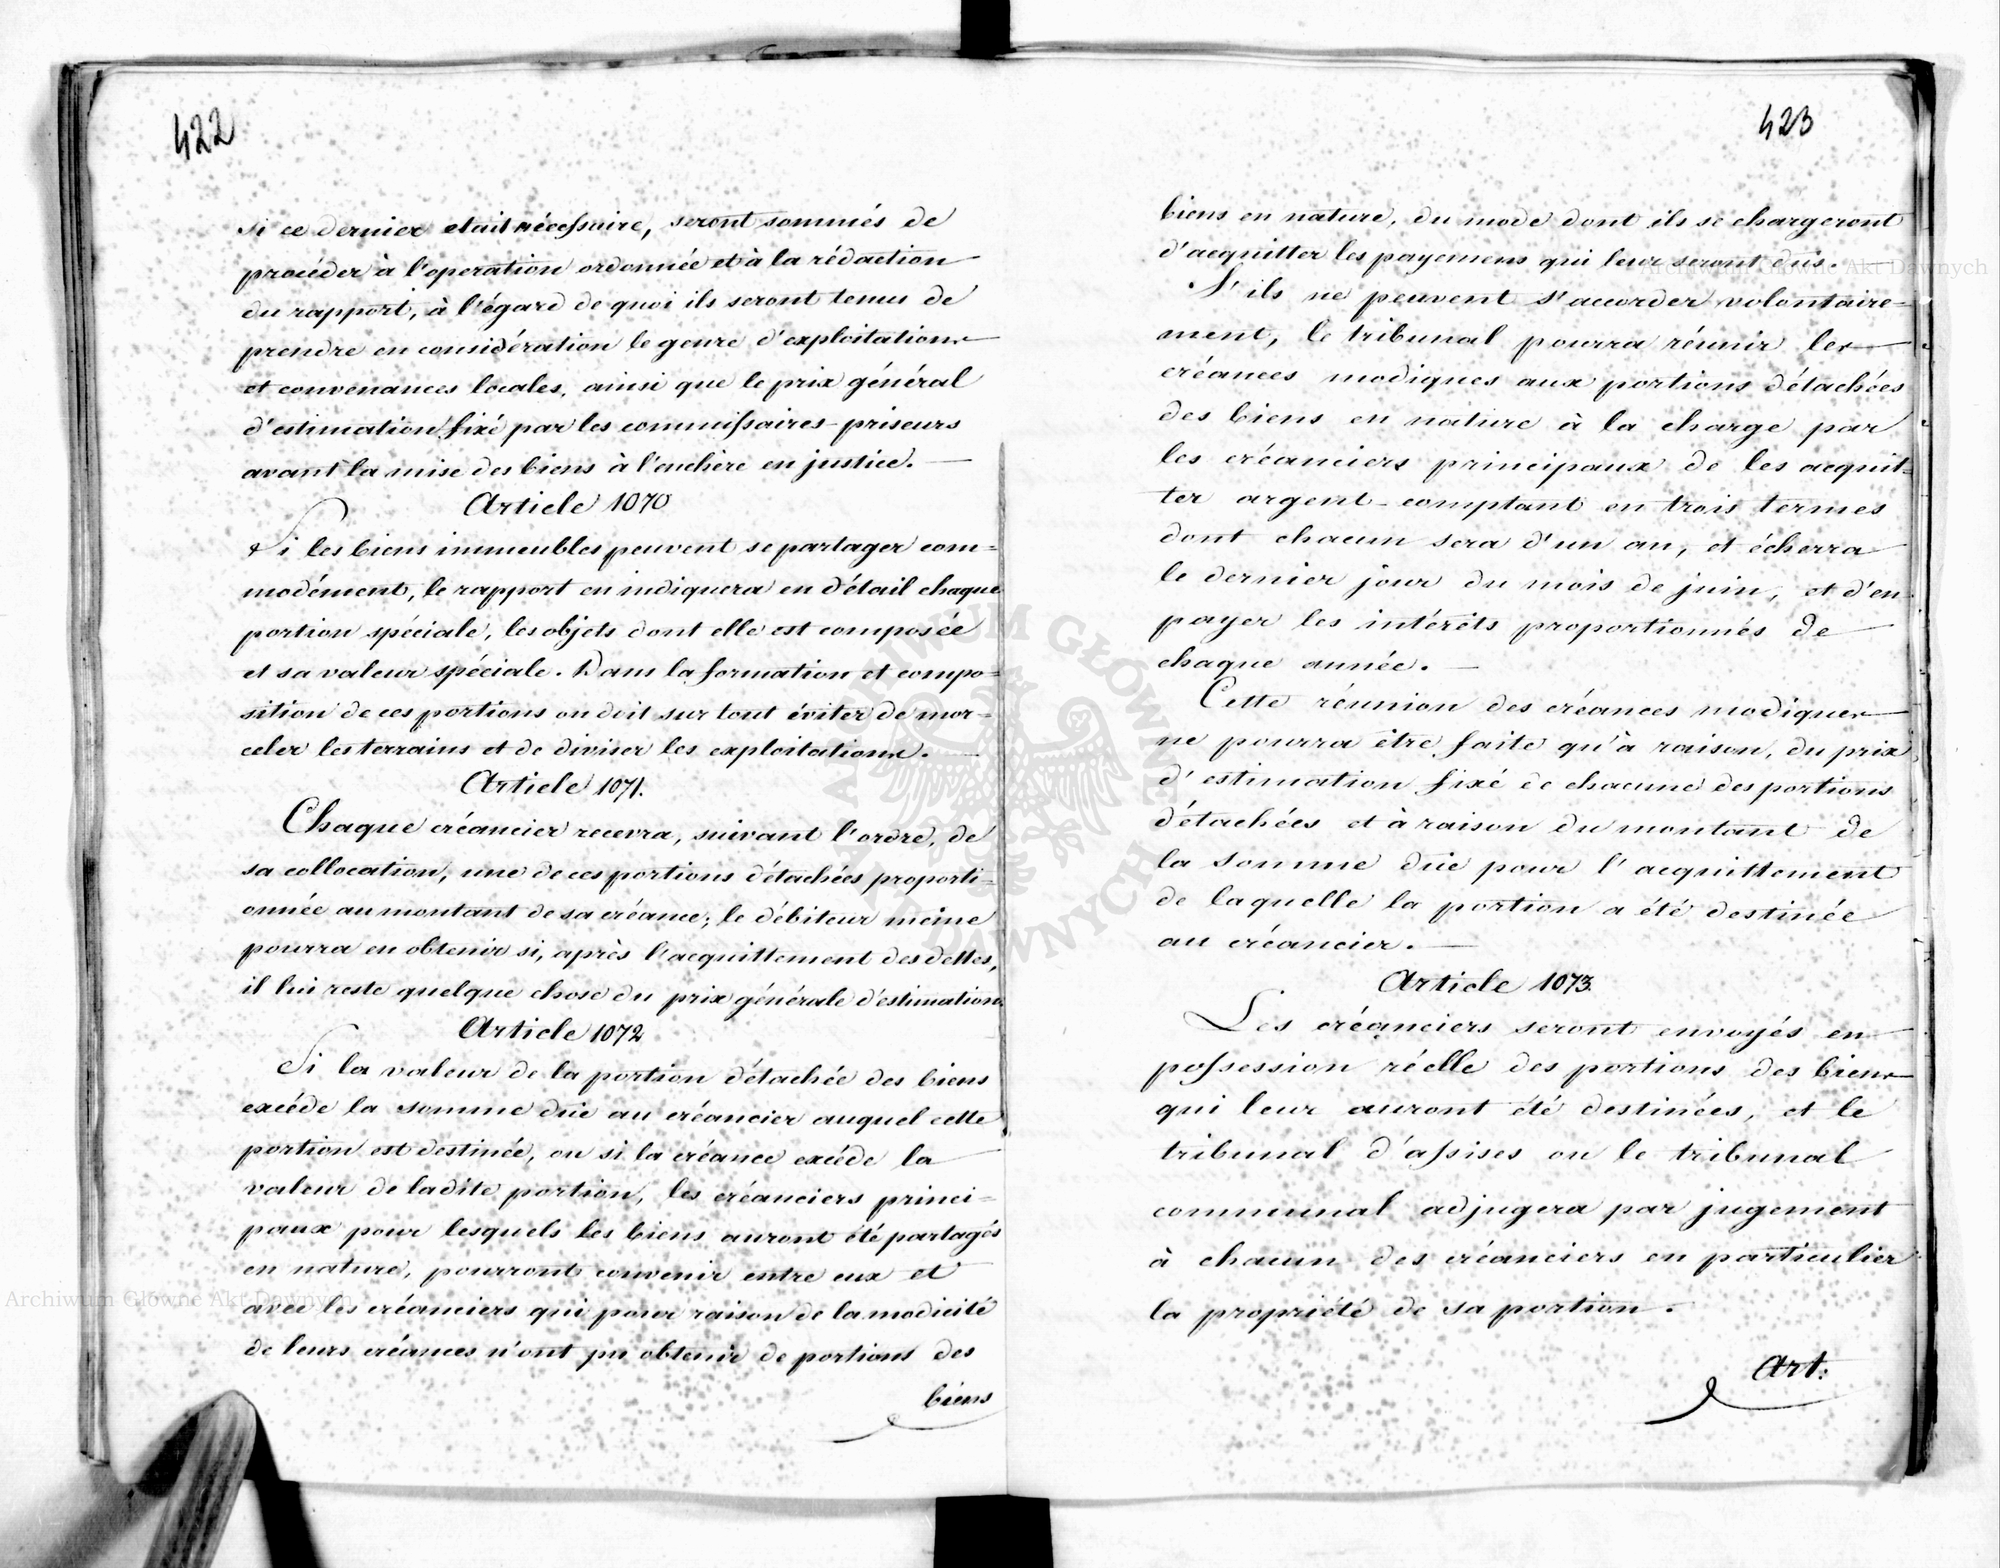 422
si ce dernier etait nécessaire, seront sommés de
procéder à l'operation ordonnée et à la rédaction
du rapport, à l'égard de quoi ils seront tenus de
prendre en considération le genre d'exploitations
et convenances locales, ainsi que le prix général
d'estimation fixé par les commissaires-priseurs
avant la mise des biens à l'enchère en justice. —
Article 1070
Si les biens immeubles peuvent se partager com=
modément, le rapport en indiquera en détail chaque
portion spéciale, les objets dont elle est composée
et sa valeur spéciale. Dans la formation et compo=
sition de ces portions on doit sur tout éviter de mor=
celer les terrains et de diviser les exploitations. —
Article 1071.
Chaque créancier recevra, suivant l'ordre, de
sa collocation, une de ces portions détachées proporti=
onnée au montant de sa créance; le débiteur même
pourra en obtenir si, après l'acquittement des dettes,
il lui reste quelque chose du prix générale d'estimation.
Article 1072
Si la valeur de la portion détachée des biens
excéde la somme düe au créancier auquel cette
portion est destinée, ou si la créance excéde la
valeur de ladite portion, les créanciers princi=
paux pour lesquels les biens auront été partagés
en nature, pourront convenir entre eux et
avec les créanciers qui pour raison de la modicité
de leurs créances n'ont pu obtenir de portions des
biens
423
biens en nature, du mode dont ils se chargeront
d'acquitter les payemens qui leur seront dus. —
S'ils ne peuvent s'accorder volontaire=
ment, le tribunal pourra réunir les
créances modiques aux portions détachées
des biens en nature à la charge par
les créanciers principaux de les acquit=
ter argent-comptant en trois termes
dont chacun sera d'un an, et écherra
le dernier jour du mois de juin, et d'en
payer les intérêts proportionnés de
chaque année. —
Cette réunion des créances modiques
ne pourra être faite qu'à raison, du prix
d'estimation fixé de chacune des portions
détachées et à raison du montant de
la somme düe pour l'acquittement
de laquelle la portion a été destinée
au créancier. —
Article 1073.
Les créanciers seront envoyés en
possession réelle des portions des biens
qui leur auront été destinées, et le
tribunal d'assises ou le tribunal
communal adjugera par jugement
à chacun des créanciers en particulier
la propriété de sa portion.
Art:
Archiwum Główne Akt Dawnych
Archiwum Główne Akt Dawnych
ARCHIWUM GŁÓWNE AKT DAWNYCH